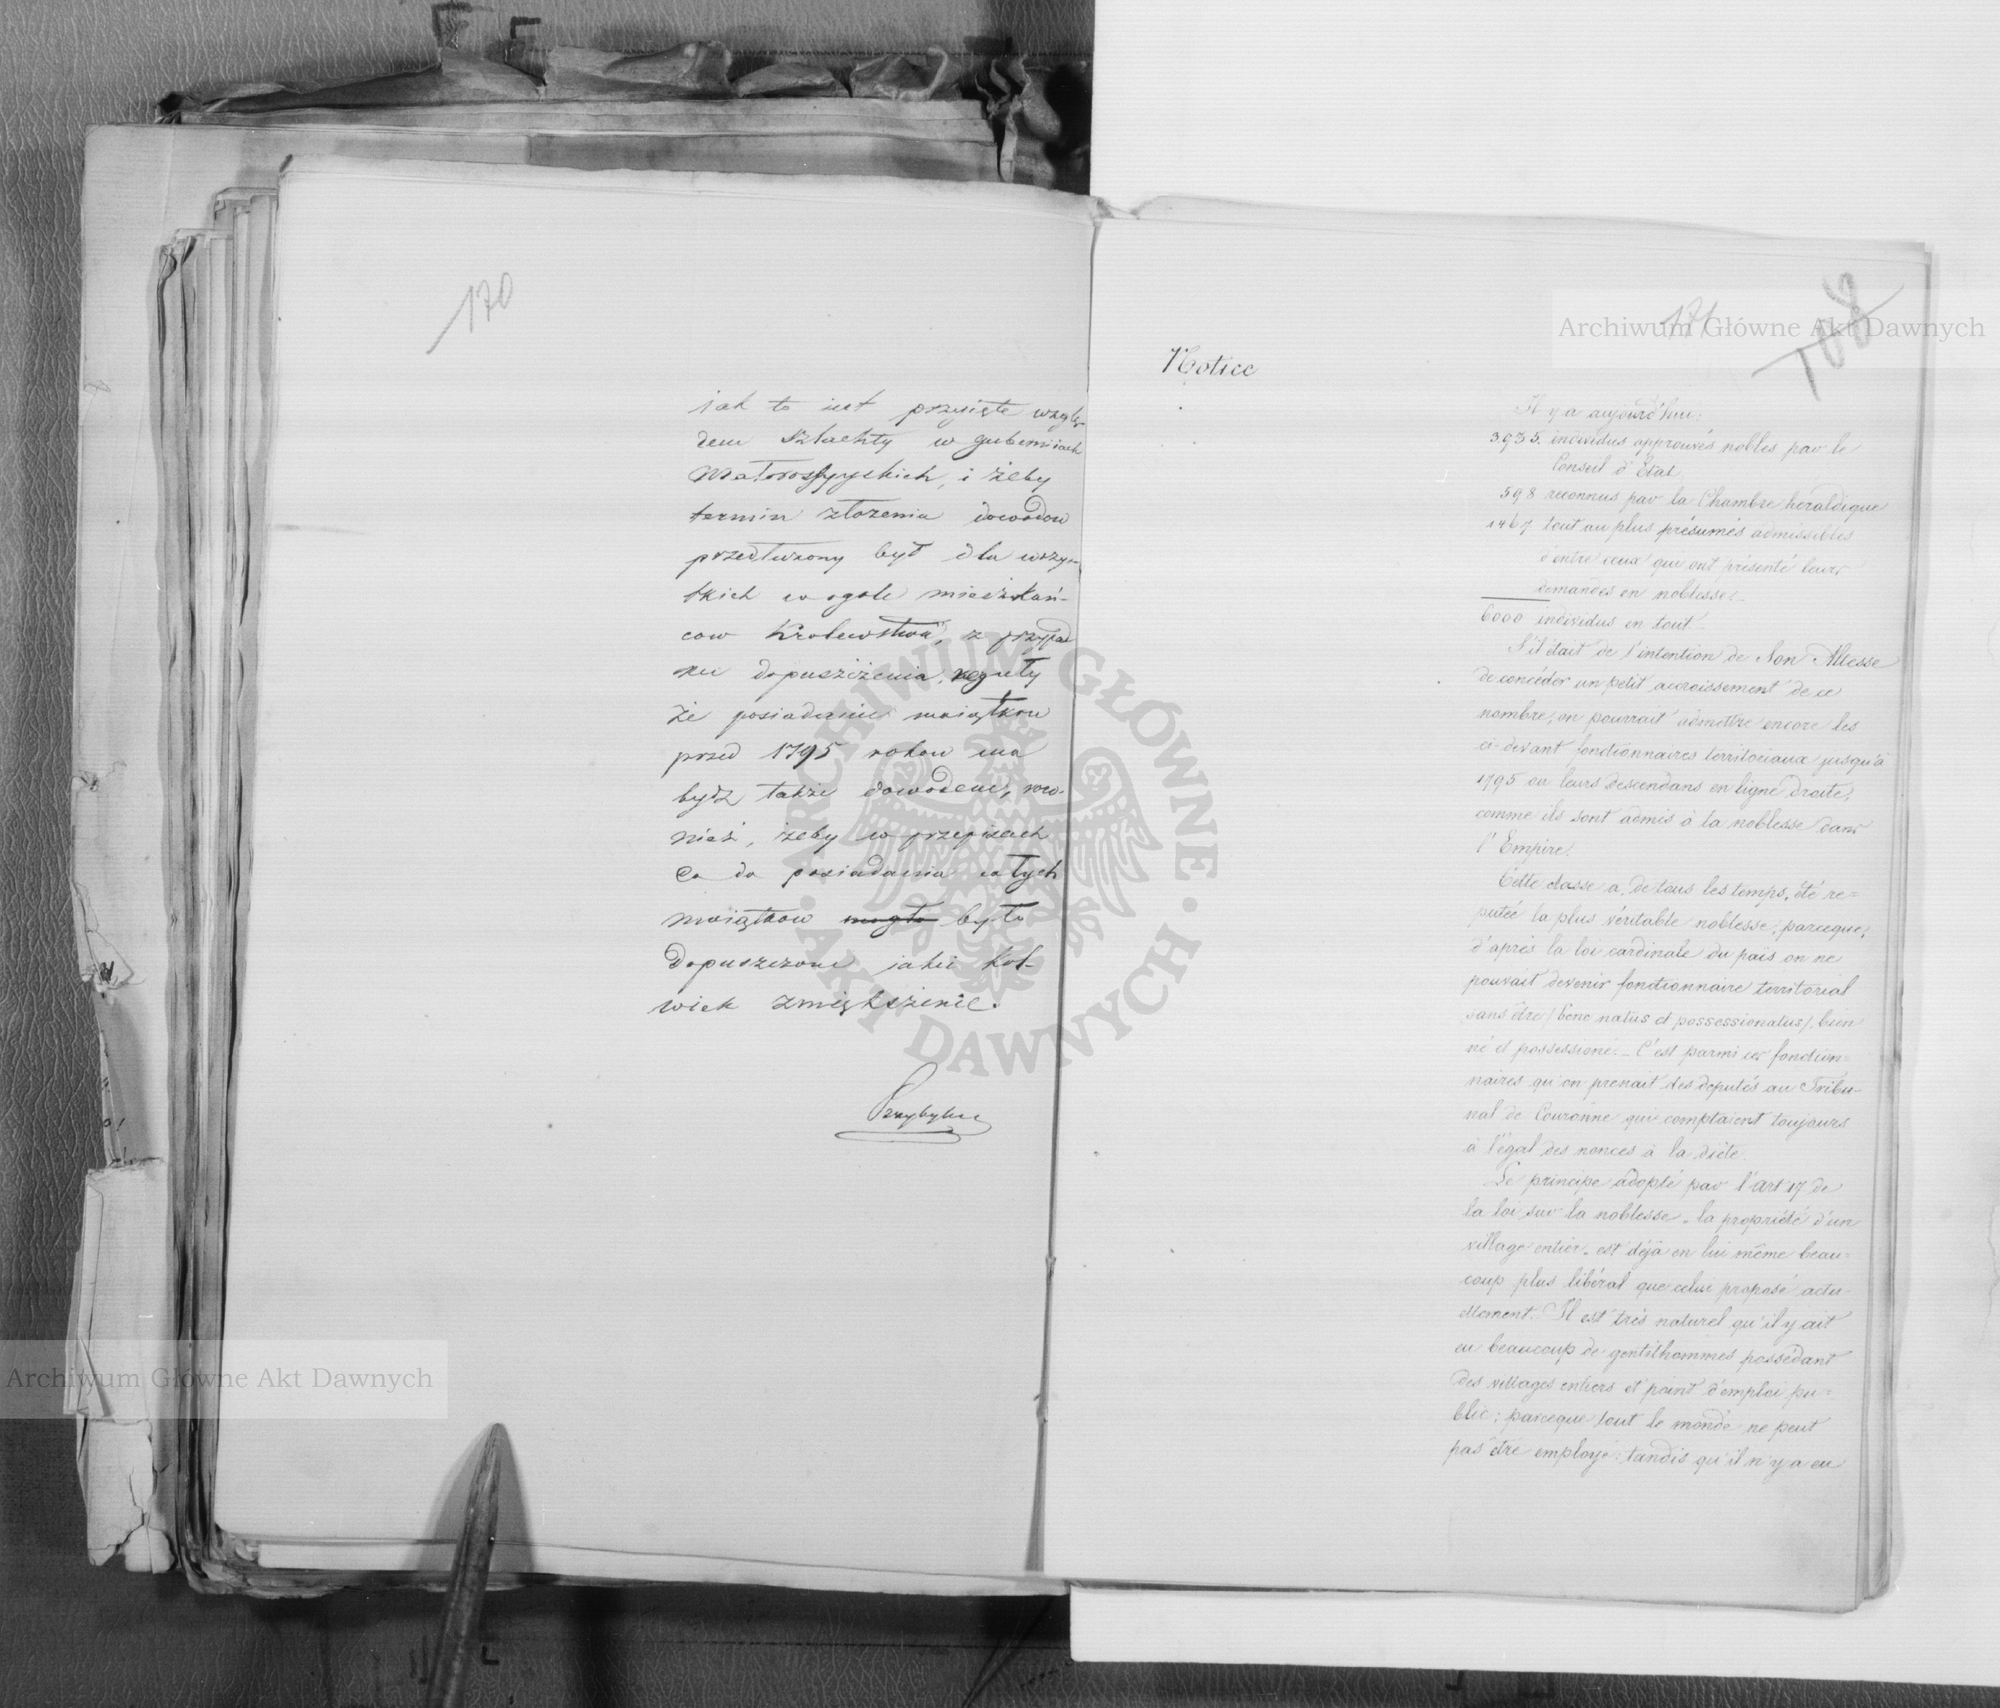 170
jak to jest przyjęte wzglę-
dem szlachty w guberniach
Małorossyyskich, i żeby
termin złożenia dowodow
przedłużony był dla wszys-
tkich w ogole mieszkań-
cow Krolewstwa, z przypad
ku dopuszczenia, reguły
że posiadanie maiątkow
przed 1795 rokow ma
bydz także dowodem, row-
nież, żeby w przepisach
co do posiadania całych
maiątkow mogło było
dopuszczone jakie kol-
wiek zmiększenie.
171
108
Notice
Il y a aujourd'hui:
3935. individus approuvés nobles par le
Conseil d'Etat
598 reconnus par la Chambre heraldique
1467 tout au plus présumés admissibles
d'entre ceux qui ont présenté leurs
demandes en noblesse
6000 individus en tout.
S'il était de l'intention de Son Altesse
de concéder un petit accroissement de ce
nombre, on pourrait admettre encore les
ci-devant fonctionnaires territoriaux jusqu'à
1795 ou leurs descendans en ligne droite,
comme ils sont admis à la noblesse dans
l'Empire.
Cette classe a, de tous les temps, été re=
putée la plus véritable noblesse, parceque,
d'après la loi cardinale du païs on ne
pouvait devenir fonctionnaire territorial
sans être /bene natus et possessionatus/ bien
né et possessioné. _ C'est parmi ces fonction=
naires qu'on prenait les deputés au Tribu-
nal de Couronne qui comptaient toujours
à l'égal des nonces à la diète.
Le principe adopté par l'art 17 de
la loi sur la noblesse - la propriété d'un
village entier - est déjà en lui même beau=
coup plus libéral que celui proposé actu-
ellement. Il est très naturel qu'il y ait
eu beaucoup de gentilhommes possédant
des villages entiers et point d'emploi pu=
blic; parceque tout le monde ne peut
pas être employé: tandis qu'il n'y a eu
Archiwum Główne Akt Dawnych
Archiwum Główne Akt Dawnych
ARCHIWUM GŁÓWNE · AKT DAWNYCH ·